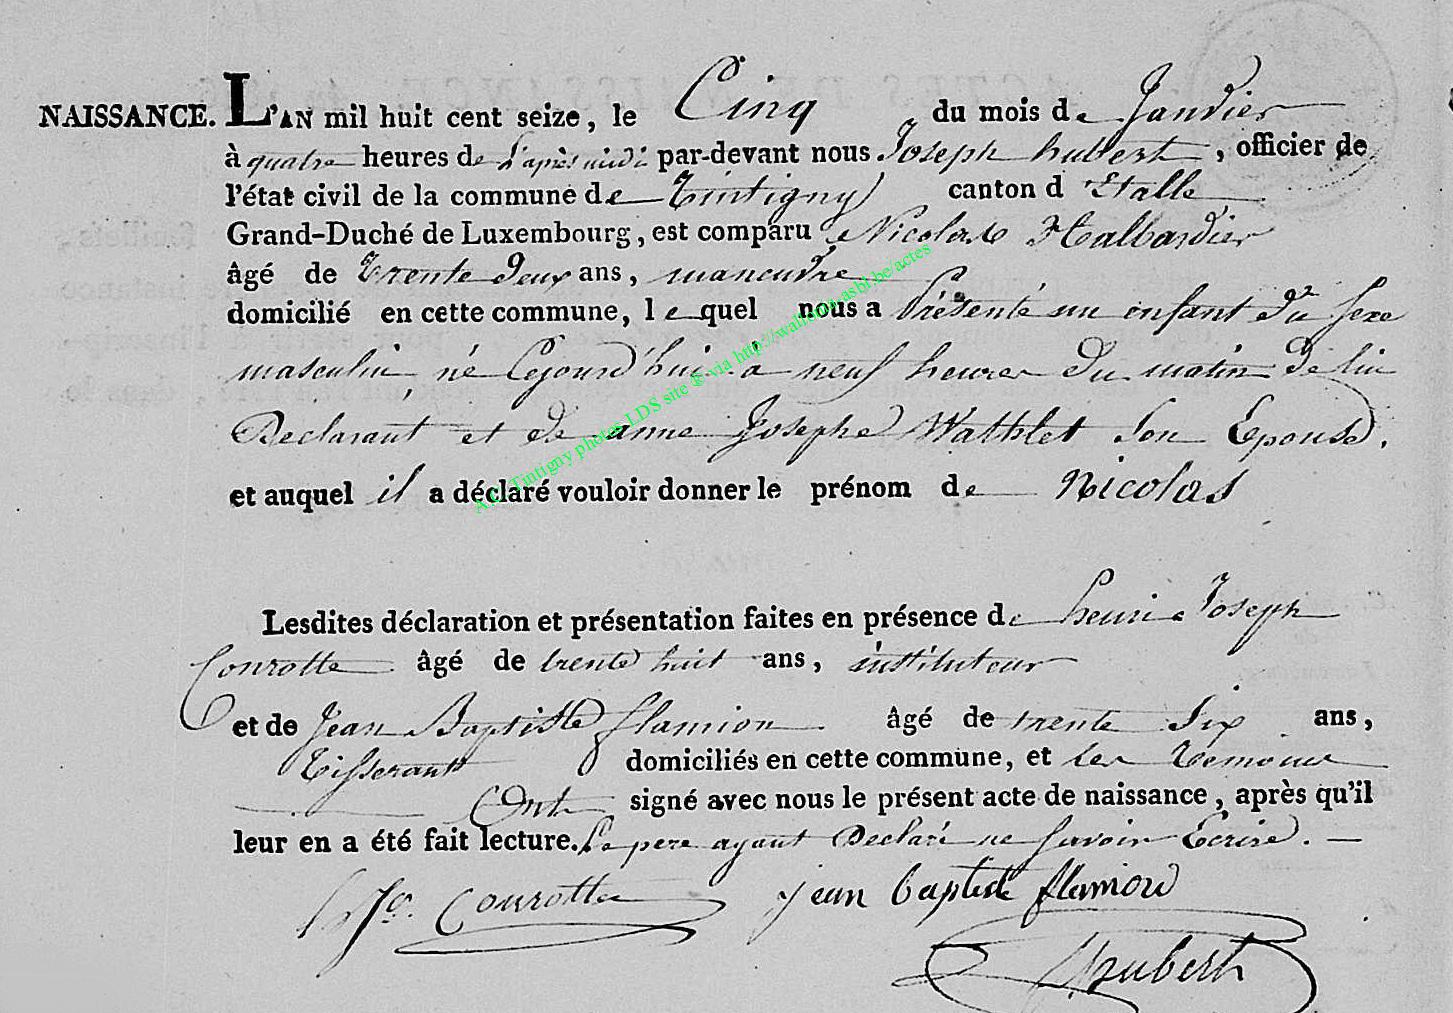 NAISSANCE. L'AN mil huit cent seize, le Cinq du mois de Janvier
à quatre heures de L'après midi par-devant nous Joseph hubert, officier de
l'état civil de la commune de Tintigny canton d'Etalle
Grand-Duché de Luxembourg, est comparu Nicolas Halbardier
âgé de Trente Deux ans, manœuvre
domicilié en cette commune, lequel nous a Présenté un enfant du Sexe
masculin, né Cejourd'hui à neuf heures du matin de lui
Declarant et de anne Josephe Wathlet Son Epouse.
et auquel il a déclaré vouloir donner le prénom de Nicolas
Lesdites déclaration et présentation faites en présence de henri Joseph
Courotte âgé de trente huit ans, instituteur
et de Jean Baptiste flamion âgé de trente Six ans,
Tisserant domiciliés en cette commune, et les Temoins
Ont signé avec nous le présent acte de naissance, après qu'il
leur en a été fait lecture. Le pere ayant Declaré ne Savoir Ecrire.
Courotte jean baptiste flamion
hubert
A.C. Tintigny photos LDS site ® via http://wallonia-asbl.be/actes